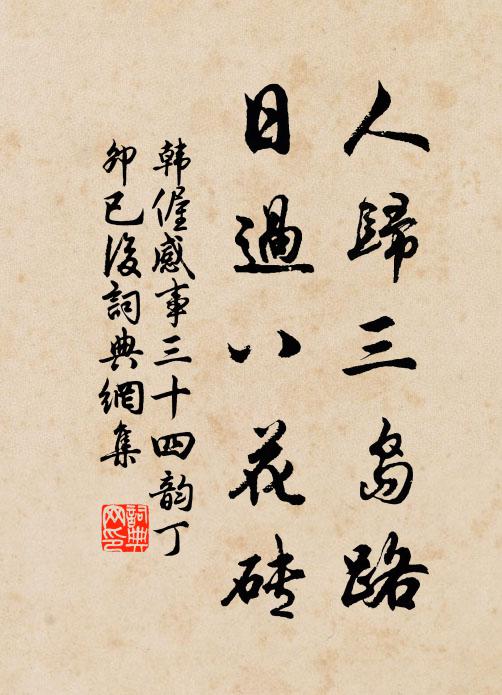 人歸三島路
日過八花砖
韩偓感事三十四韵丁
卯已後詞典網集
詞典网印